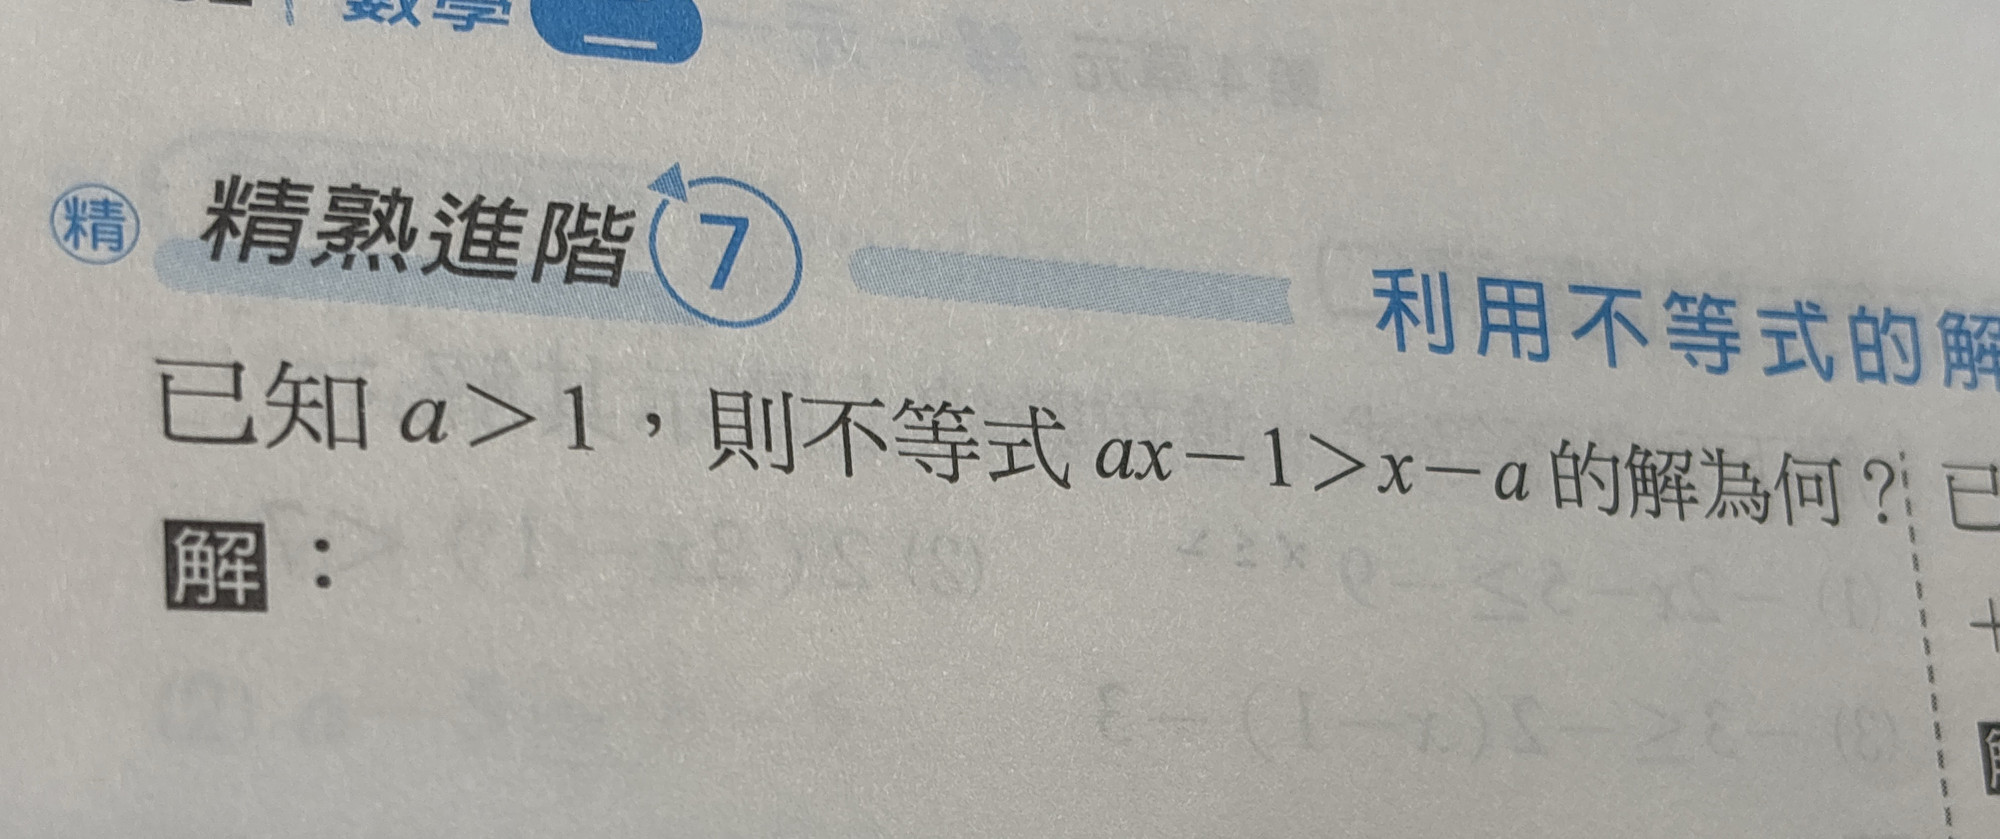 數學
精 精熟進階 7 利用不等式的解
已知 a>1，則不等式 ax－1>x－a 的解為何？
已
解：
＋